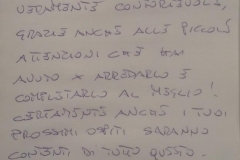 VERAMENTE CONFORTEVOLE,
GRAZIE ANCHE ALLE PICCOLE
ATTENZIONI CHE HAI
AVUTO X ARREDARLO E
COMPLETARLO AL MEGLIO!
CERTAMENTE ANCHE I TUOI
PROSSIMI OSPITI SARANNO
CONTENTI DI TUTTO QUESTO.